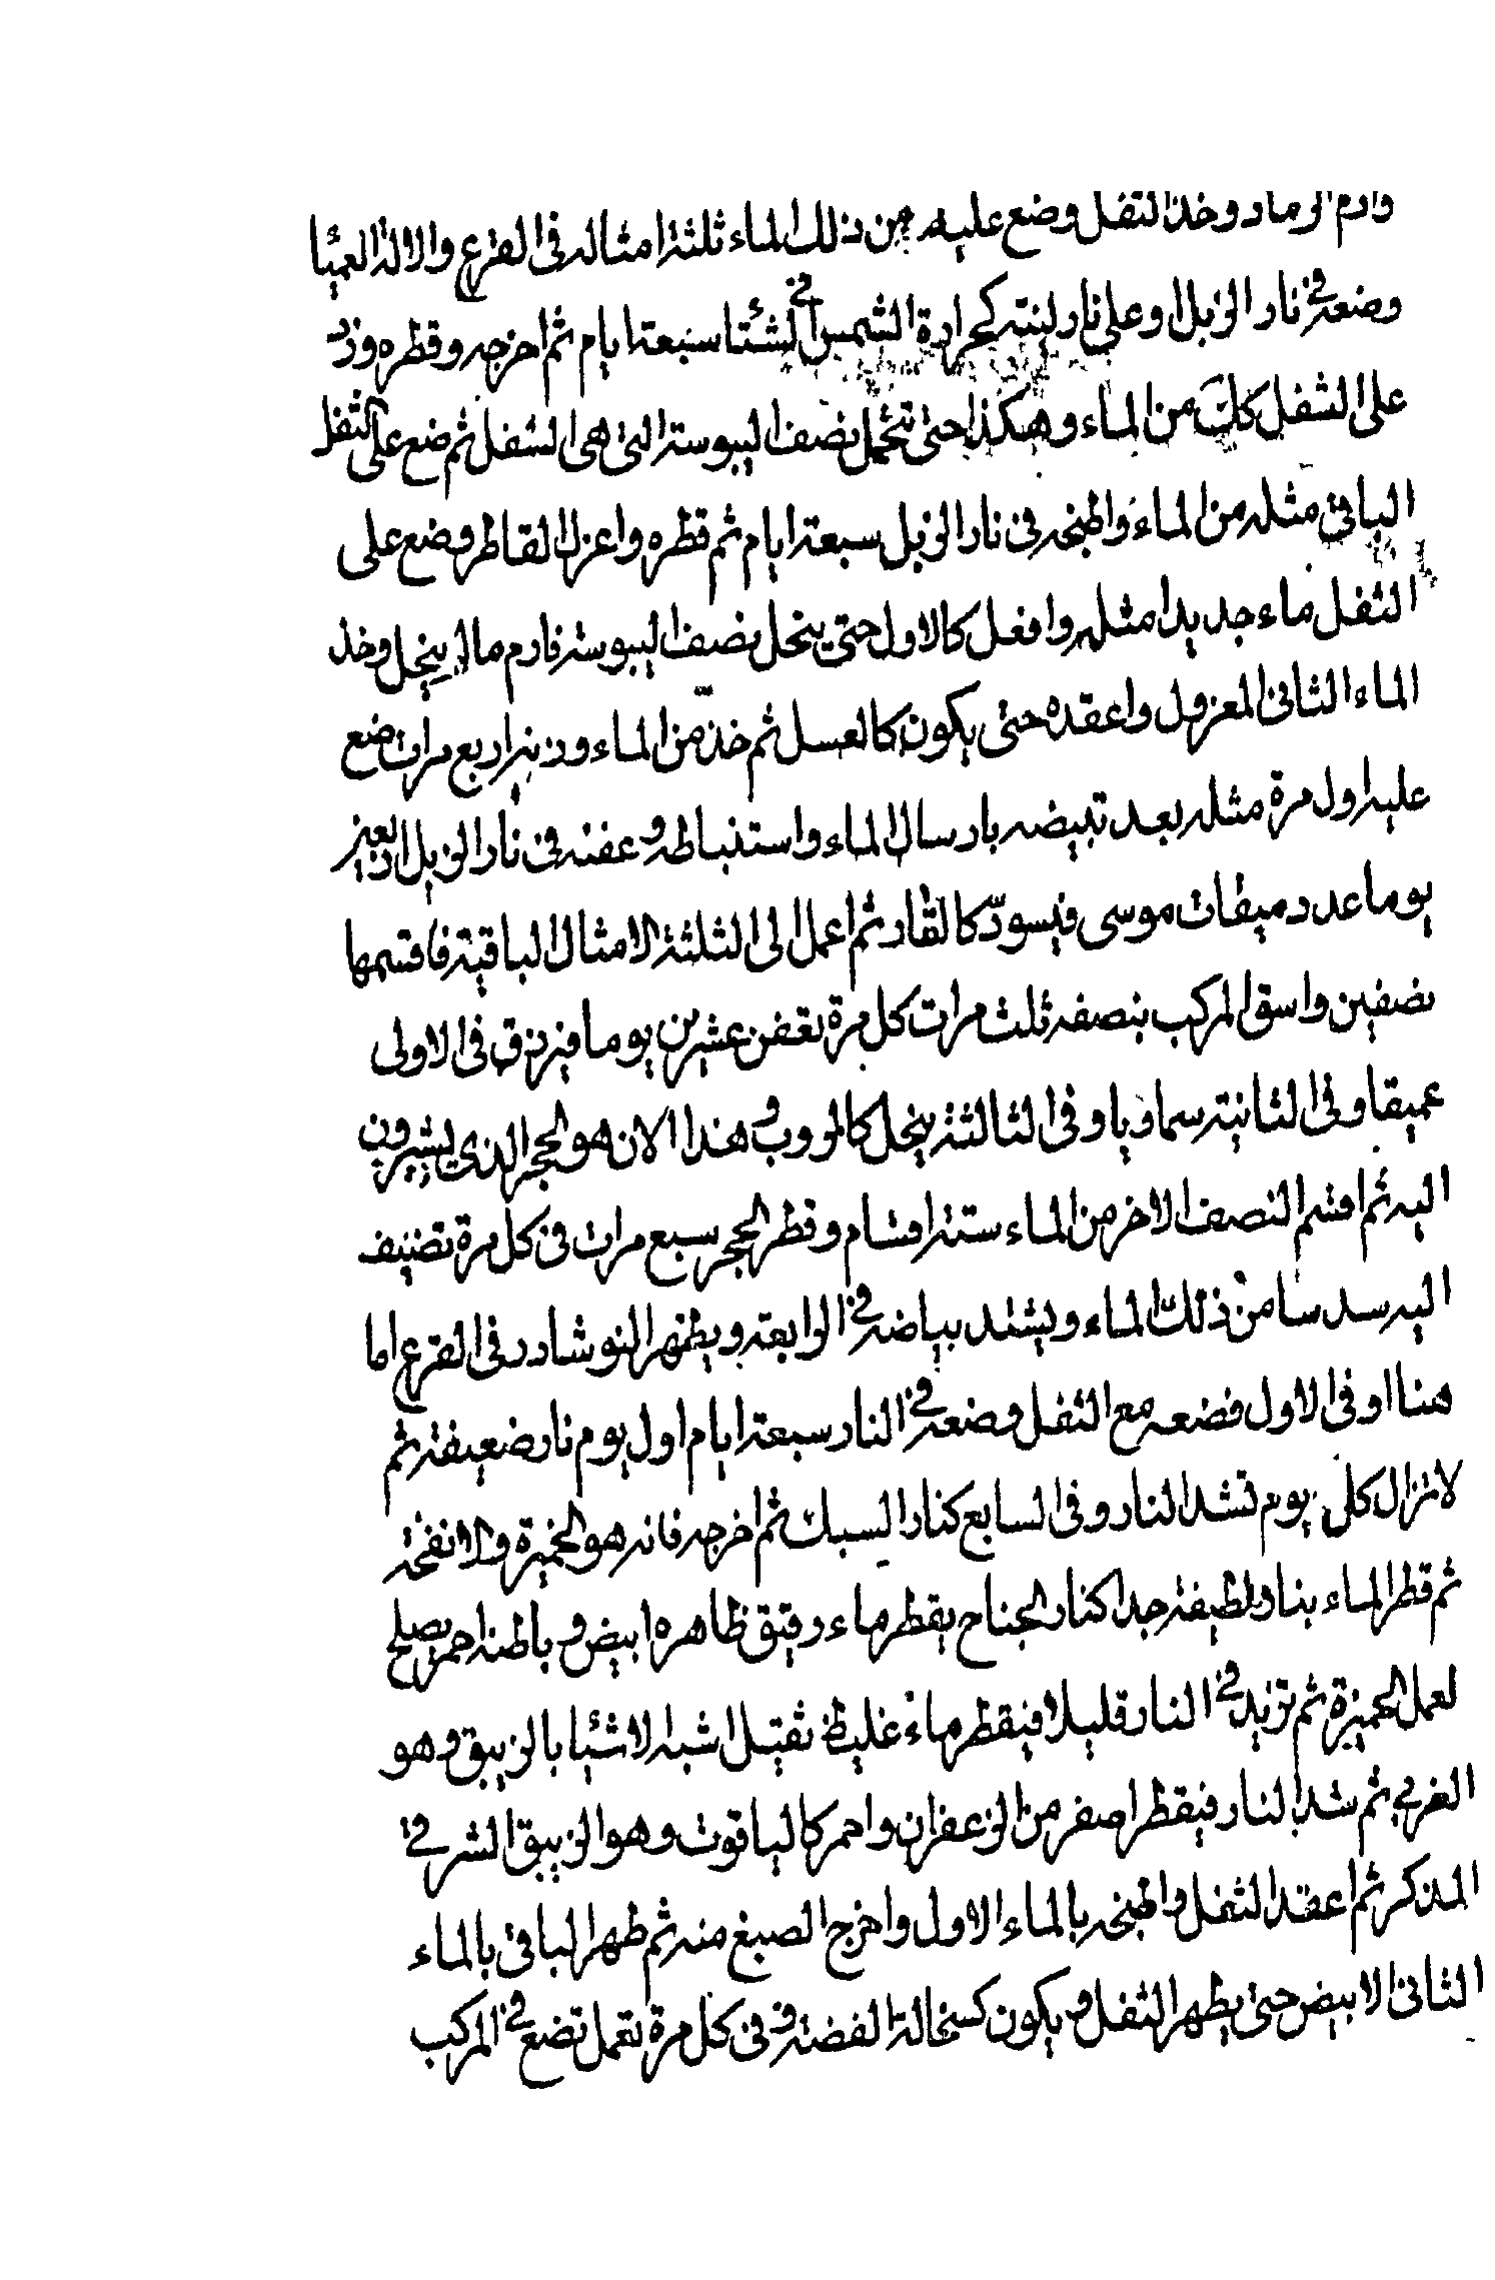 وارم الرماد وخذ الثفل وضع عليه من ذلك الماء ثلثة امثاله فى القرع والالة العميا
وضعه فى نار الزبل او على نار لينة كحرارة الشمس فى الشتا سبعة ايام ثم اخرجه وقطره وزد
على الثفل كلت من الماء وهكذا حتى تنحل نصف اليبوسة التى هى الثفل ثم ضع على الثفل
الباقى مثله من الماء واطبخه فى نار الزبل سبعة ايام ثم قطره واعزل القاطر وضع على
الثفل ماء جديدا مثله وافعل كالاول حتى ينحل نصف اليبوسة فارم ما لم ينحل وخذ
الماء الثانى المعزول واعقده حتى يكون كالعسل ثم خذ من الماء وزنه اربع مرات ضع
عليه اول مرة مثله بعد تبيضه بارسال الماء واستنباطه وعفنه فى نار الزبل اربعين
يوما عدد ميقات موسى فيسود كالقار ثم اعمل الى الثلثة الامثال الباقية فاقسمها
نصفين واسق المركب بنصفه ثلث مرات كل مرة تعفن عشرين يوما فيزرق فى الاولى
عميقا وفى الثانية سماويا وفى الثالثة ينحل كالروب وهذا الان هو الحجر الذى يشيرون
اليه ثم اقسم النصف الاخر من الماء ستة اقسام وقطر الحجر سبع مرات فى كل مرة تضيف
اليه سدسا من ذلك الماء ويشتد بياضه فى الرابعة ويظهر النوشادر فى القرع اما
هنا او فى الاول فضعه مع الثفل وضعه فى النار سبعة ايام اول يوم نار ضعيفة ثم
لا تزال كل يوم تشد النار وفى السابع كنار السبك ثم اخرجه فانه هو الخميرة والانفحة
ثم قطر الماء بنار لطيفة جدا كنار الجناح يقطر ماء رقيق ظاهره ابيض وباطنه احمر يصلح
لعمل الخميرة ثم تزيد فى النار قليلا فيقطر ماء غليظ ثقيل اشبه الاشيا بالزيبق وهو
الغربى ثم شد النار فيقطر اصفر من الزعفران واحمر كالياقوت وهو الزيبق الشرقى
المذكر ثم اعقد الثفل واطبخه بالماء الاول واخرج الصبغ منه ثم طهر الباقى بالماء
الثانى الابيض حتى يطهر الثفل ويكون كسحالة الفضة وفى كل مرة تعمل تضع فى المركب